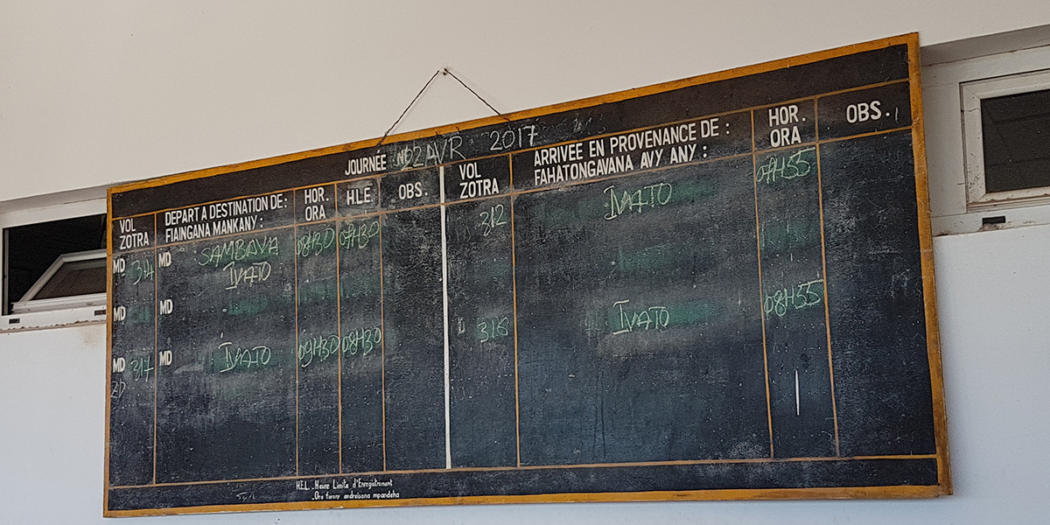 JOURNÉE 02 AVR 2017
VOL
ZOTRA
DEPART A DESTINATION DE :
FIAINGANA MANKANY :
HOR.
ORA
H.L.E.
OBS.
VOL
ZOTRA
ARRIVÉE EN PROVENANCE DE :
FAHATONGAVANA AVY ANY :
HOR.
ORA
OBS.
MD MD SAMBAVA 08H30 07H30 312 IVATO
IVATO
MD MD
MD 317 MD IVATO 09H30 08H30 316 IVATO 08H55
H.E.L. _Heure Limite d'Enregistrement
_Ora farany andraisana mpandeha